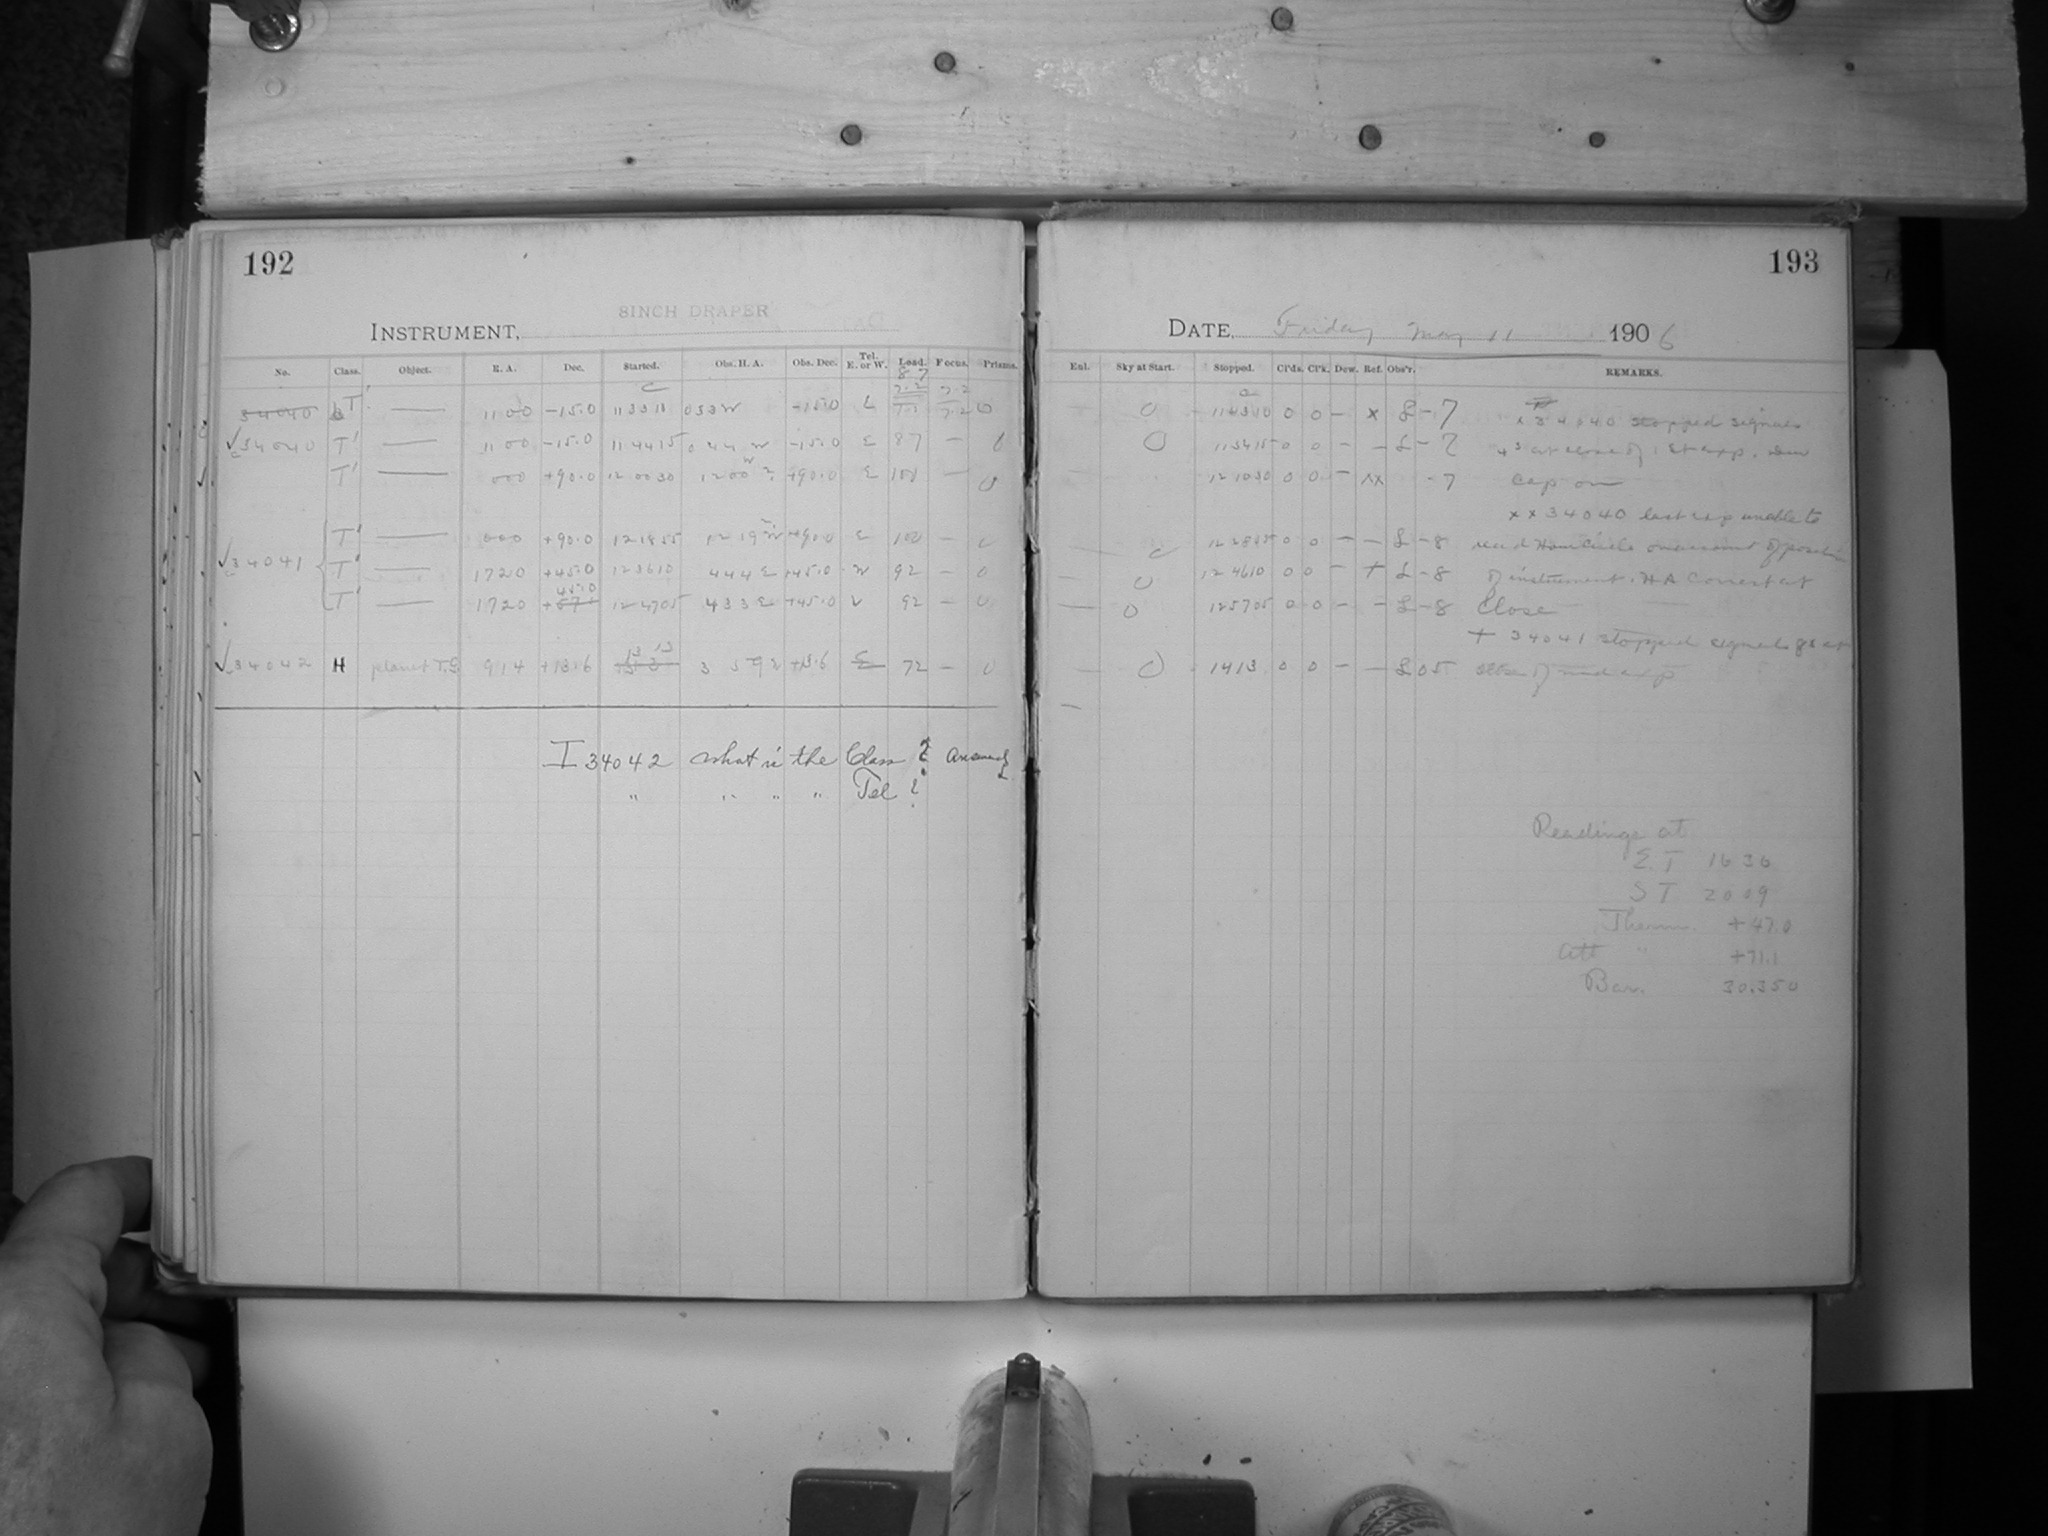 192
8INCH DRAPER
INSTRUMENT,
No. Class. Object. R. A. Dec. Started. Obs. H. A. Obs. Dec. Tel. E. or W. Load. Focus. Prisms.
87
34040 T' — 11 00 -15.0 11 33 10 0 53 W -15.0 7.2 7.2 0
34040 T' — 11 00 -15.0 11 44 15 0 44 W -15.0 E 87 — 0
T' — 0 00 +90.0 12 00 30 12 00 +90.0 E 100 — 0
T' — 0 00 +90.0 12 18 55 12 19 +90.0 E 100 — 0
34041 T' — 17 20 +45.0 12 36 10 4 44 E +45.0 W 92 — 0
45.0
T' — 17 20 12 47 05 4 33 E +45.0 92 — 0
13 13
34042 H planet T.G. 9 14 +13.6 3 59 +13.6 E 72 — 0
I 34042 what is the Class ? Answered
" " " " Tel ?
193
DATE, Friday May 11 1906
Enl. Sky at Start. Stopped. Cl'ds. Cl'k. Dew. Ref. Obs'r. REMARKS.
0 11 43 10 0 0 — x £ - 7 x 34040 stopped signals
0 11 54 15 0 0 — — £ - 7 4s at close of 1st exp. Dew
12 10 30 0 0 — xx - 7 cap on
xx 34040 last exp unable to
12 28 55 0 0 — — £ - 8 read Hour Circle on account of position
0 12 46 10 0 0 — + £ - 8 of instrument. H A Correct at
— 0 12 57 05 0 0 — — £ - 8 Close
+ 34041 stopped signals 8s at
— 0 14 13 0 0 — — £ 05 close of 2nd exp
Readings at
E T 16 36
S T 20 09
Therm. +47.0
Att " +71.1
Bar. 30.350